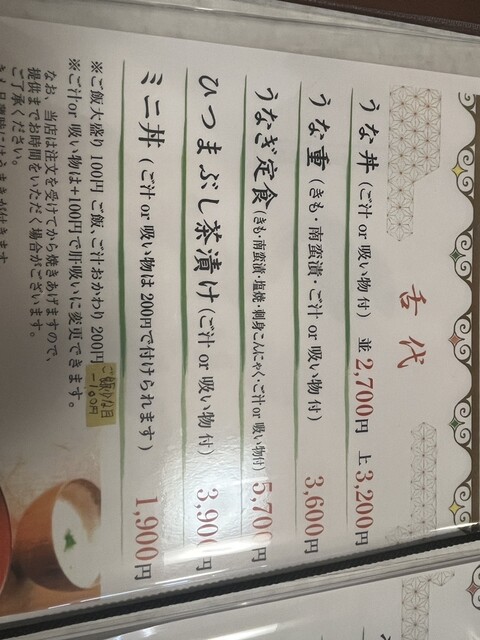 舌代
うな丼 (ご汁 or 吸い物 付) 並 2,700円 上 3,200円
うな重 (きも・南蛮漬・ご汁 or 吸い物 付) 3,600円
うなぎ定食 (きも・南蛮漬・塩焼・刺身こんにゃく・ご汁 or 吸い物付) 5,700円
ひつまぶし茶漬け (ご汁 or 吸い物 付) 3,900円
ミニ丼 (ご汁 or 吸い物は 200円で付けられます) 1,900円
※ご飯大盛り 100円 ご飯、ご汁おかわり 200円
ご飯少な目 -100円
※ご汁 or 吸い物は+100円で肝吸いに変更できます。
なお、当店は注文を受けてから焼きあげますので、
提供までお時間をいただく場合がございます。
ご了承ください。